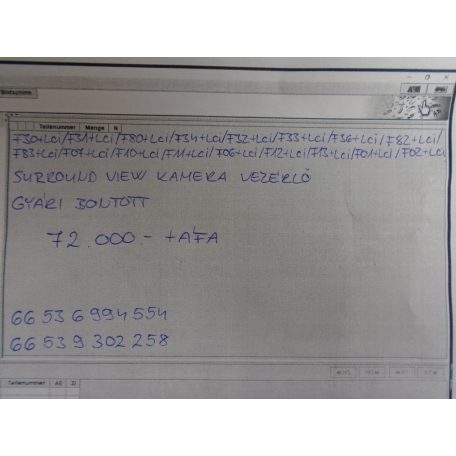 Bildschirm
Teilenummer Menge N
F30+LCi/F31+LCi/F80+LCi/F34+LCi/F32+LCi/F33+LCi/F36+LCi/F82+LCi/
F83+LCi/F07+LCi/F10+LCi/F11+LCi/F06+LCi/F12+LCi/F13+LCi/F01+LCi/F02+LCi
SURROUND VIEW KAMERA VEZÉRLŐ
GYÁRI BONTOTT
72.000.- +ÁFA
66 53 6 994 554
66 53 9 302 258
Teilenummer AE ZI